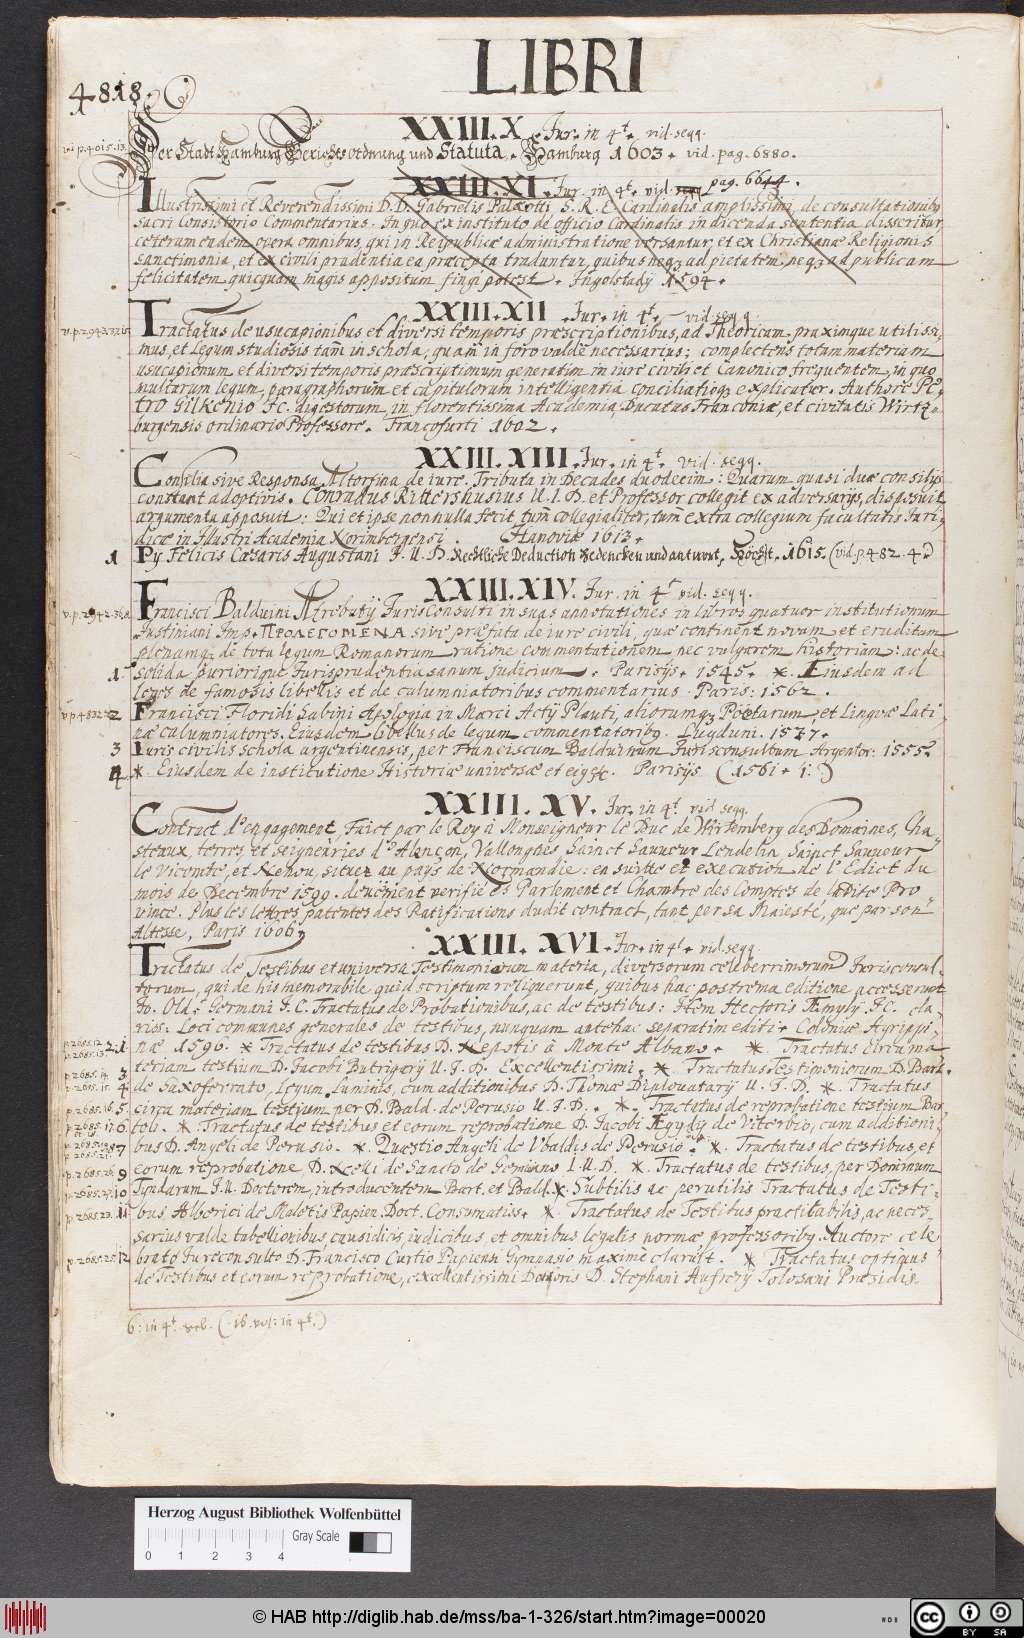 LIBRI
4818.
XXIII.X. Jur. in 4t. vid. seqq.
Der Stadt Hamburg Gerichts ordnung und Statuta. Hamburg 1603. vid. pag. 6880.
XXIII.XI. Jur. in 4t. vid. pag. 6644.
Illustrissimi et Reverendissimi D. D. Gabrielis Palæotti S. R. E. Cardinalis amplissimi, de consultationibus
sacri Consistorio Commentarius. In quo ex instituto de officio Cardinalis in dicenda sententia disseritur,
ceterum eadem opera omnibus, qui in Reipublicæ administratione versantur, et ex Christianæ Religionis
sanctimonia, et ex civili prudentia ea præcepta traduntur, quibus neq3 ad pietatem neq3 ad publicam
felicitatem quicquam magis appositum fingi potest. Ingolstadij 1594.
XXIII.XII. Jur. in 4t. vid. seqq.
Tractatus de usucapionibus et diversi temporis præscriptionibus, ad Theoricam praximque utilissi-
mus, et Legum studiosis tam in schola, quam in foro valde necessarius; complectens totam materiam
usucapionum et diversi temporis præscriptionum generatim in iure civili et Canonico frequentem, in quo
multarum legum, paragraphorum et capitulorum intelligentia conciliatioq3 explicatur. Authore PE-
TRO GILKENIO JC. digestorum, in florentissima Academia Ducatus Franconiæ, et civitatis Wirtz-
burgensis ordinario Professore. Francofurti 1602.
XXIII.XIII. Jur. in 4t. vid. seqq.
Consilia sive Responsa Altorfina de iure. Tributa in Decades duodecim: Quarum quasi duæ consilijs
constant adoptivis. Conradus Rittershusius U. I. D. et Professor collegit ex adversarijs, disposuit
argumenta apposuit: Qui et ipse nonnulla fecit, tum collegialiter, tum extra collegium facultatis Juri-
dicæ in Illustri Academia Norimbergensi. Hanoviæ 1613.
1 Py Felicis Cæsaris Augustani J. U. D. Rechtliche Deduction Bedencken und antwort, Höchst. 1615. (vid. p. 482. 4.)
XXIII.XIV. Jur. in 4t. vid. seqq.
Francisci Balduini Atrebatij JurisConsulti in suas annotationes in libros quatuor institutionum
Justiniani Imp. ΠΡΟΛΕΓΟΜΕΝΑ sive præfata de iure civili, quæ continent novam et eruditam
plenamq; de tota legum Romanorum ratione commentationem nec vulgarem historiam: ac de
1 solida puriorique Jurisprudentia sanum Judicium. Parisijs. 1545. * Eiusdem ad
leges de famosis libellis et de calumniatoribus commentarius. Paris: 1562.
2 Francisci Floridi Sabini Apologia in Marci Actij Plauti, aliorumq3 Poetarum, et Linguæ Lati-
næ calumniatores. Eiusdem libellus de legum commentatorib9. Lugduni. 1537.
3 Iuris civilis schola argentinensis, per Franciscum Balduinum Jurisconsultum Argentor: 1555.
4 *. Eiusdem de institutione Historiæ universæ et eius &c. Parisijs (1561. 4.)
XXIII. XV. Jur. in 4t. vid. seqq.
Contract d'engagement, Faict par le Roy à Monseigneur le Duc de Wirtemberg des Domaines, Cha-
steaux, terres, et seigneuries d'Alençon, Vallongnes Sainct Sauveur Lendelin Sainct Sauveur
le Vicomte, et Nehou, situez au pays de Normandie: en suitte et execution de l'Edict du
mois de Decembre 1599. deuëment verifié es Parlement et Chambre des Comptes de ladite Pro
vince. Plus les lettres patentes des Ratifications dudit contract, tant per sa Maiesté, que par son
Altesse, Paris 1606.
XXIII. XVI. Jur. in 4t. vid. seqq.
Tractatus de Testibus et universa Testimoniorum materia, diversorum celeberrimorum Jurisconsul-
torum, qui de his memorabile quid scriptum reliquerunt, quibus hac postrema editione accesserunt
Jo. Old. Germani J. C. Tractatus de Probationibus, ac de testibus: Item Hectoris Æmylij JC. cla-
riss: Loci communes generales de testibus, nunquam antehac separatim editi. Coloniæ Agrippi-
2. 1. næ 1596. * Tractatus de testibus D. Nepotis à Monte Albano. *. Tractatus circa ma-
3 teriam testium D. Jacobi Butrigarij U. J. D. Excellentissimi. * Tractatus Testimoniorum D. Bart.
4 de Saxoferrato, Legum Luminis, cum additionibus D. Thomæ Diplovatarij U. J. D. *. Tractatus
5. circa materiam testium per D. Bald. de Perusio U. J. D. *. Tractatus de reprobatione testium Bar-
6 toli. * Tractatus de testibus et eorum reprobatione D. Jacobi Ægydij de Viterbio, cum additioni-
8 7 bus D. Angeli de Perusio. *. Quæstio Angeli de Ubaldis de Perusio. *. Tractatus de testibus, et
9 eorum reprobatione D. Nelli de Sancto de Geminiano I. U. D. *. Tractatus de testibus, per Dominum
10 Tyndarum J. U. Doctorem, introducentem Bart. et Bald. *. Subtilis ac perutilis Tractatus de Testi-
11 bus Alberici de Maletis Papien. Doct. Consumatiss. *. Tractatus de Testibus practicabilis, ac neces-
sarius valde tabellionibus causidicis iudicibus, et omnibus legalis normæ professorib9. Auctore cele-
12 brato Jureconsulto D. Francisco Curtio Papiensi Gymnasio maxime claruit. * Tractatus optimus
de Testibus et eorum reprobatione, excellentissimi Doctoris D. Stephani Aufrerij Tolosani Præsidis
6: in 4t. (16. vol: in 4t.)
Herzog August Bibliothek Wolfenbüttel
Gray Scale
0 1 2 3 4
© HAB http://diglib.hab.de/mss/ba-1-326/start.htm?image=00020
WDB
cc BY SA